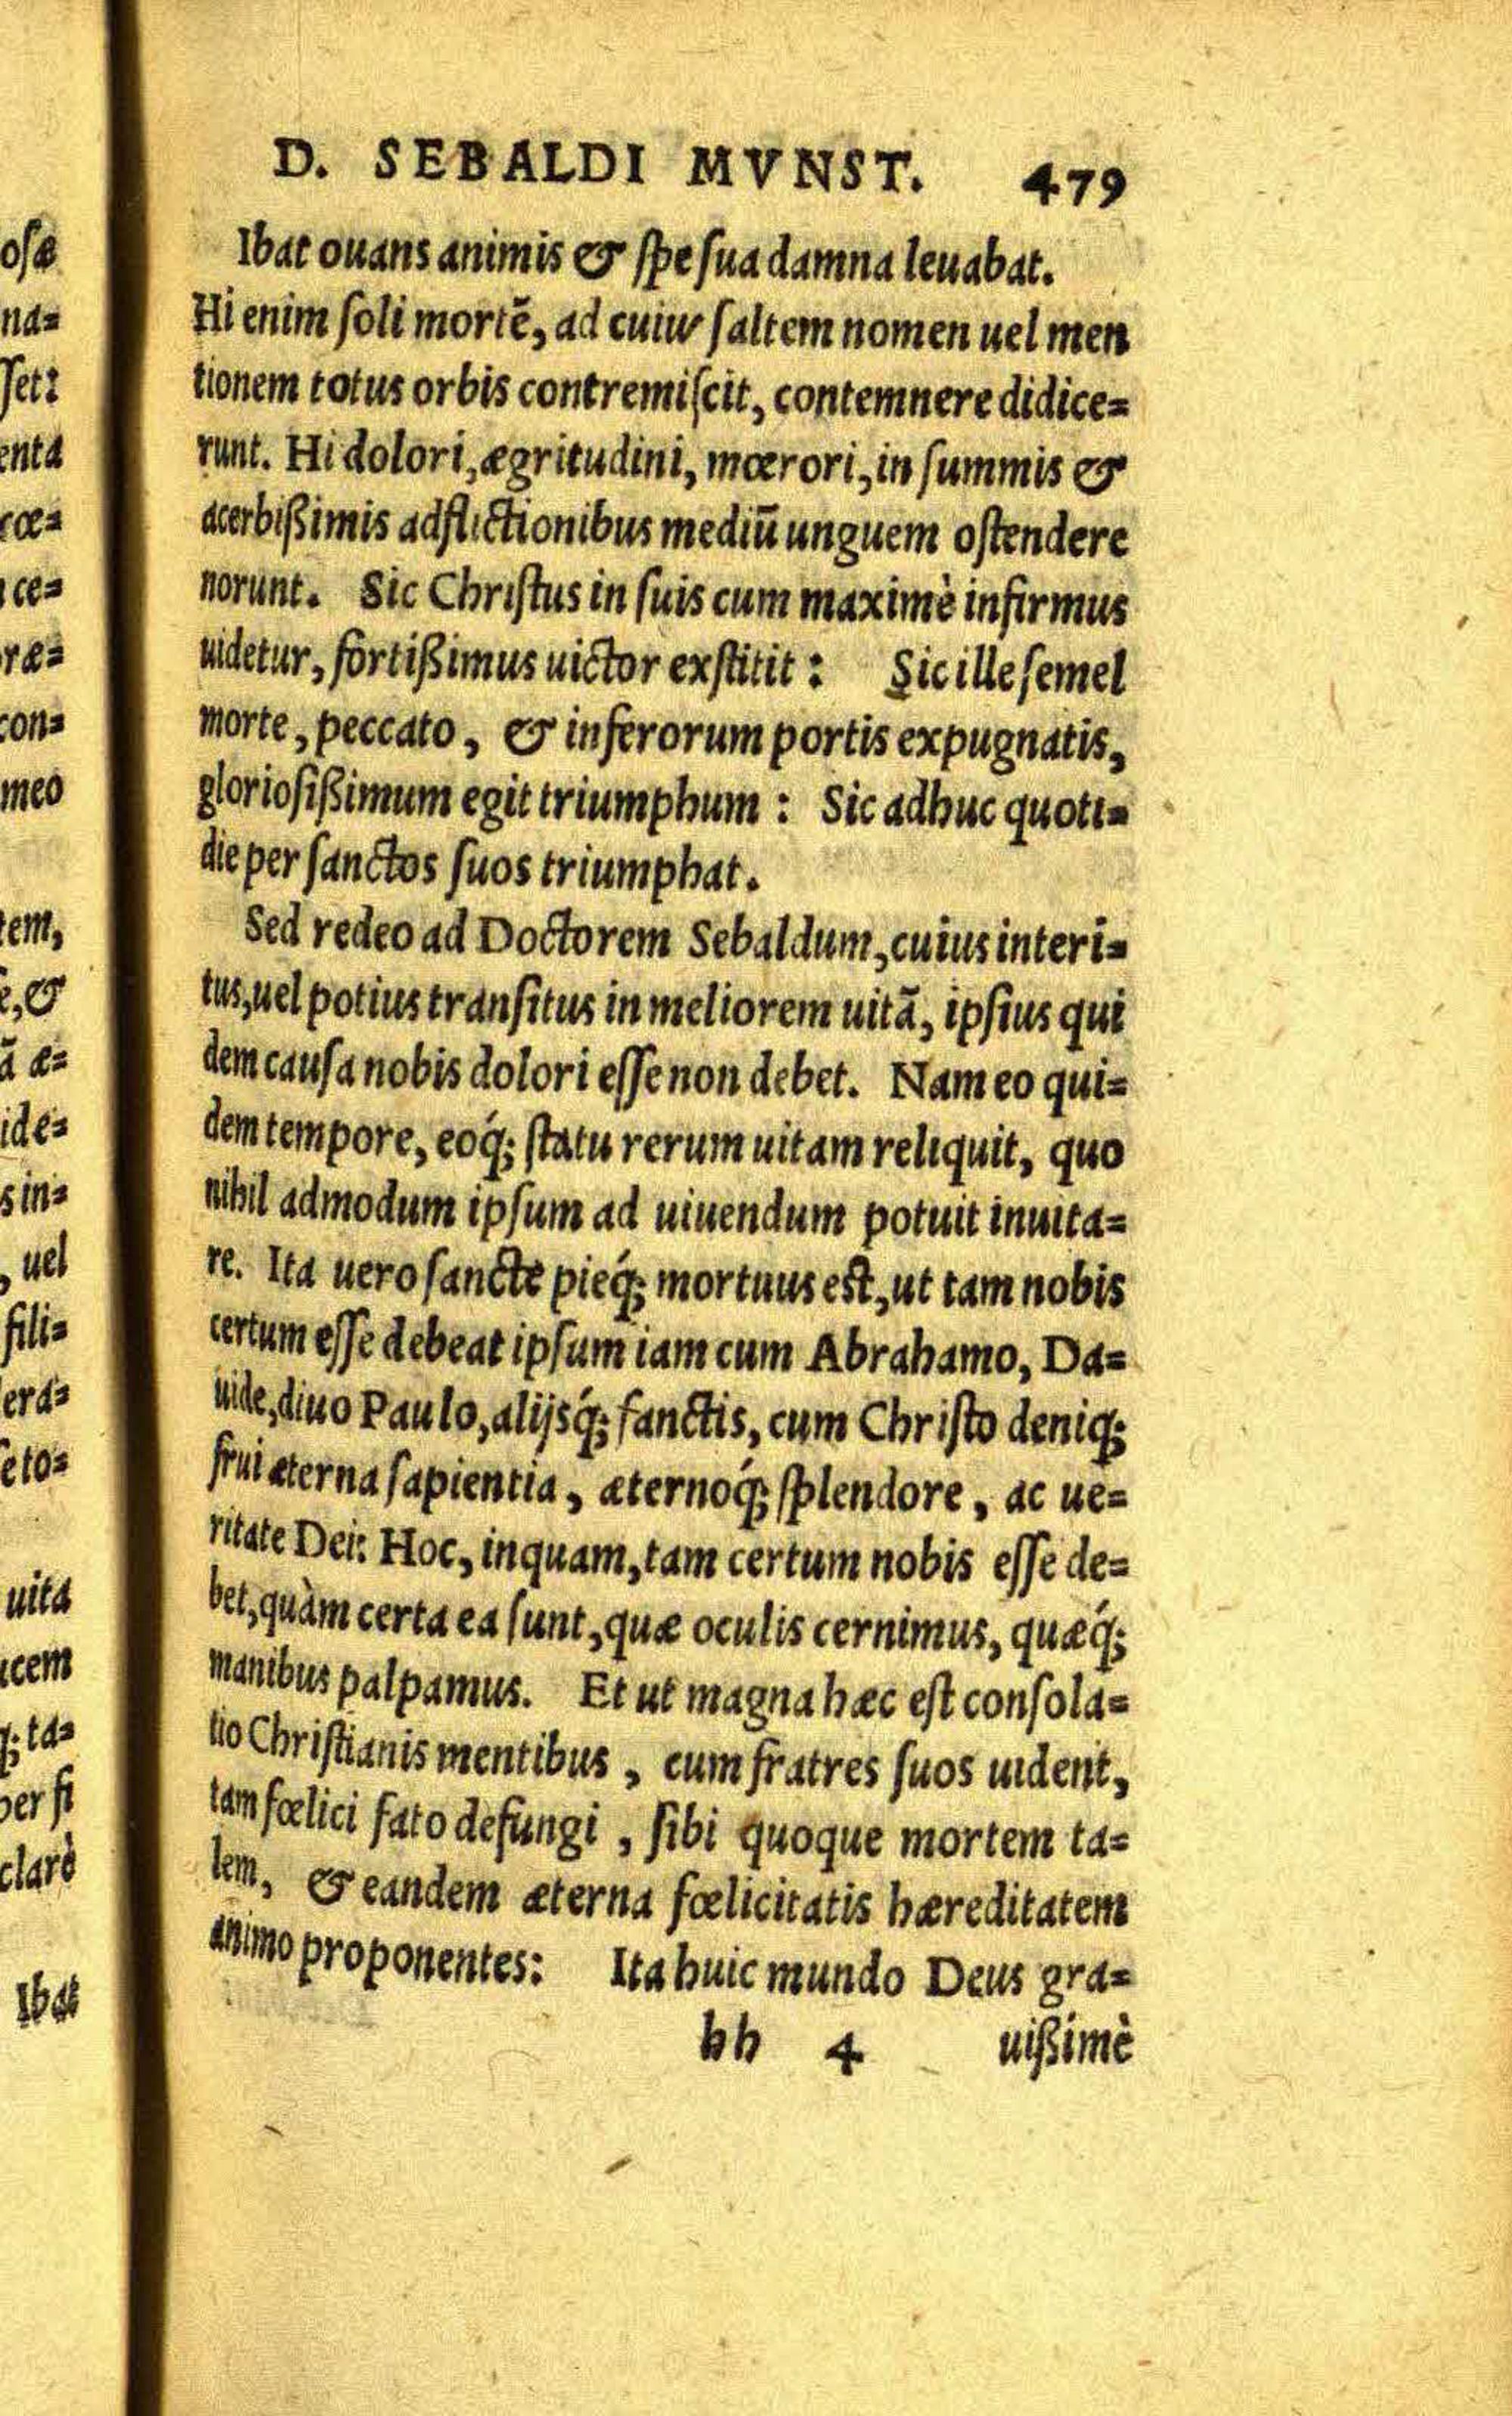 D. SEBALDI MVNST. 479
Ibat ouans animis & ſpe ſua damna leuabat.
Hi enim ſoli mortē, ad cuius ſaltem nomen uel men
tionem totus orbis contremiſcit, contemnere didice=
runt. Hi dolori, ægritudini, mœrori, in ſummis &
acerbißimis adflictionibus mediū unguem oſtendere
norunt. Sic Chriſtus in ſuis cum maximè infirmus
uidetur, fortißimus uictor exſtitit: Sic ille ſemel
morte, peccato, & inferorum portis expugnatis,
glorioſißimum egit triumphum: Sic adhuc quoti=
die per ſanctos ſuos triumphat.
Sed redeo ad Doctorem Sebaldum, cuius interi=
tus, uel potius tranſitus in meliorem uitā, ipſius qui
dem cauſa nobis dolori eſſe non debet. Nam eo qui=
dem tempore, eoq́; ſtatu rerum uitam reliquit, quo
nihil admodum ipſum ad uiuendum potuit inuita=
re. Ita uero ſancte pieq́; mortuus eſt, ut tam nobis
certum eſſe debeat ipſum iam cum Abrahamo, Da=
uide, diuo Paulo, alijsq́; ſanctis, cum Chriſto deniq;
frui æterna ſapientia, æternoq́; ſplendore, ac ue=
ritate Dei: Hoc, inquam, tam certum nobis eſſe de=
bet, quàm certa ea ſunt, quæ oculis cernimus, quæq́;
manibus palpamus. Et ut magna hæc eſt conſola=
tio Chriſtianis mentibus, cum fratres ſuos uident,
tam fœlici fato defungi, ſibi quoque mortem ta=
lem, & eandem æterna fœlicitatis hæreditatem
animo proponentes: Ita huic mundo Deus gra=
hh 4 uißimè